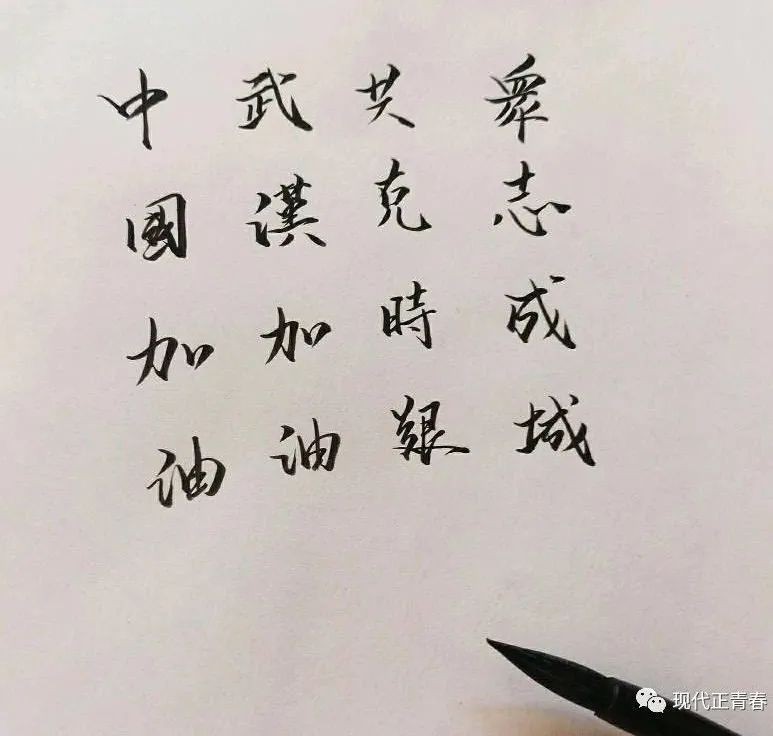 眾志成城
共克時艱
武漢加油
中國加油
现代正青春